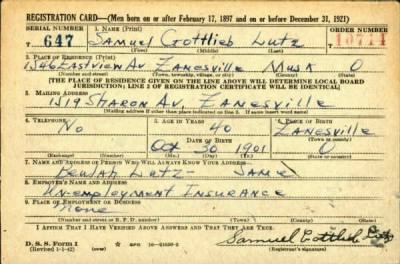 REGISTRATION CARD—(Men born on or after February 17, 1897 and on or before December 31, 1921)
SERIAL NUMBER 1. NAME (Print) ORDER NUMBER
T 647 Samuel Gottlieb Lutz 10711
(First) (Middle) (Last)
2. PLACE OF RESIDENCE (Print)
1346 Eastview Av Zanesville Musk O
(Number and street) (Town, township, village, or city) (County) (State)
[THE PLACE OF RESIDENCE GIVEN ON THE LINE ABOVE WILL DETERMINE LOCAL BOARD
JURISDICTION; LINE 2 OF REGISTRATION CERTIFICATE WILL BE IDENTICAL]
3. MAILING ADDRESS
1519 Sharon Av. Zanesville
[Mailing address if other than place indicated on line 2. If same insert word same]
4. TELEPHONE 5. AGE IN YEARS 6. PLACE OF BIRTH
No 40 Zanesville
DATE OF BIRTH (Town or county)
Oct 30 1901 O
(Exchange) (Number) (Mo.) (Day) (Yr.) (State or country)
7. NAME AND ADDRESS OF PERSON WHO WILL ALWAYS KNOW YOUR ADDRESS
Beulah Lutz - Same
8. EMPLOYER'S NAME AND ADDRESS
Un-employment Insurance
9. PLACE OF EMPLOYMENT OR BUSINESS
None
(Number and street or R. F. D. number) (Town) (County) (State)
I AFFIRM THAT I HAVE VERIFIED ABOVE ANSWERS AND THAT THEY ARE TRUE.
D. S. S. Form 1
(Revised 1-1-42) GPO Samuel Gottlieb Lutz
(Registrant's signature)